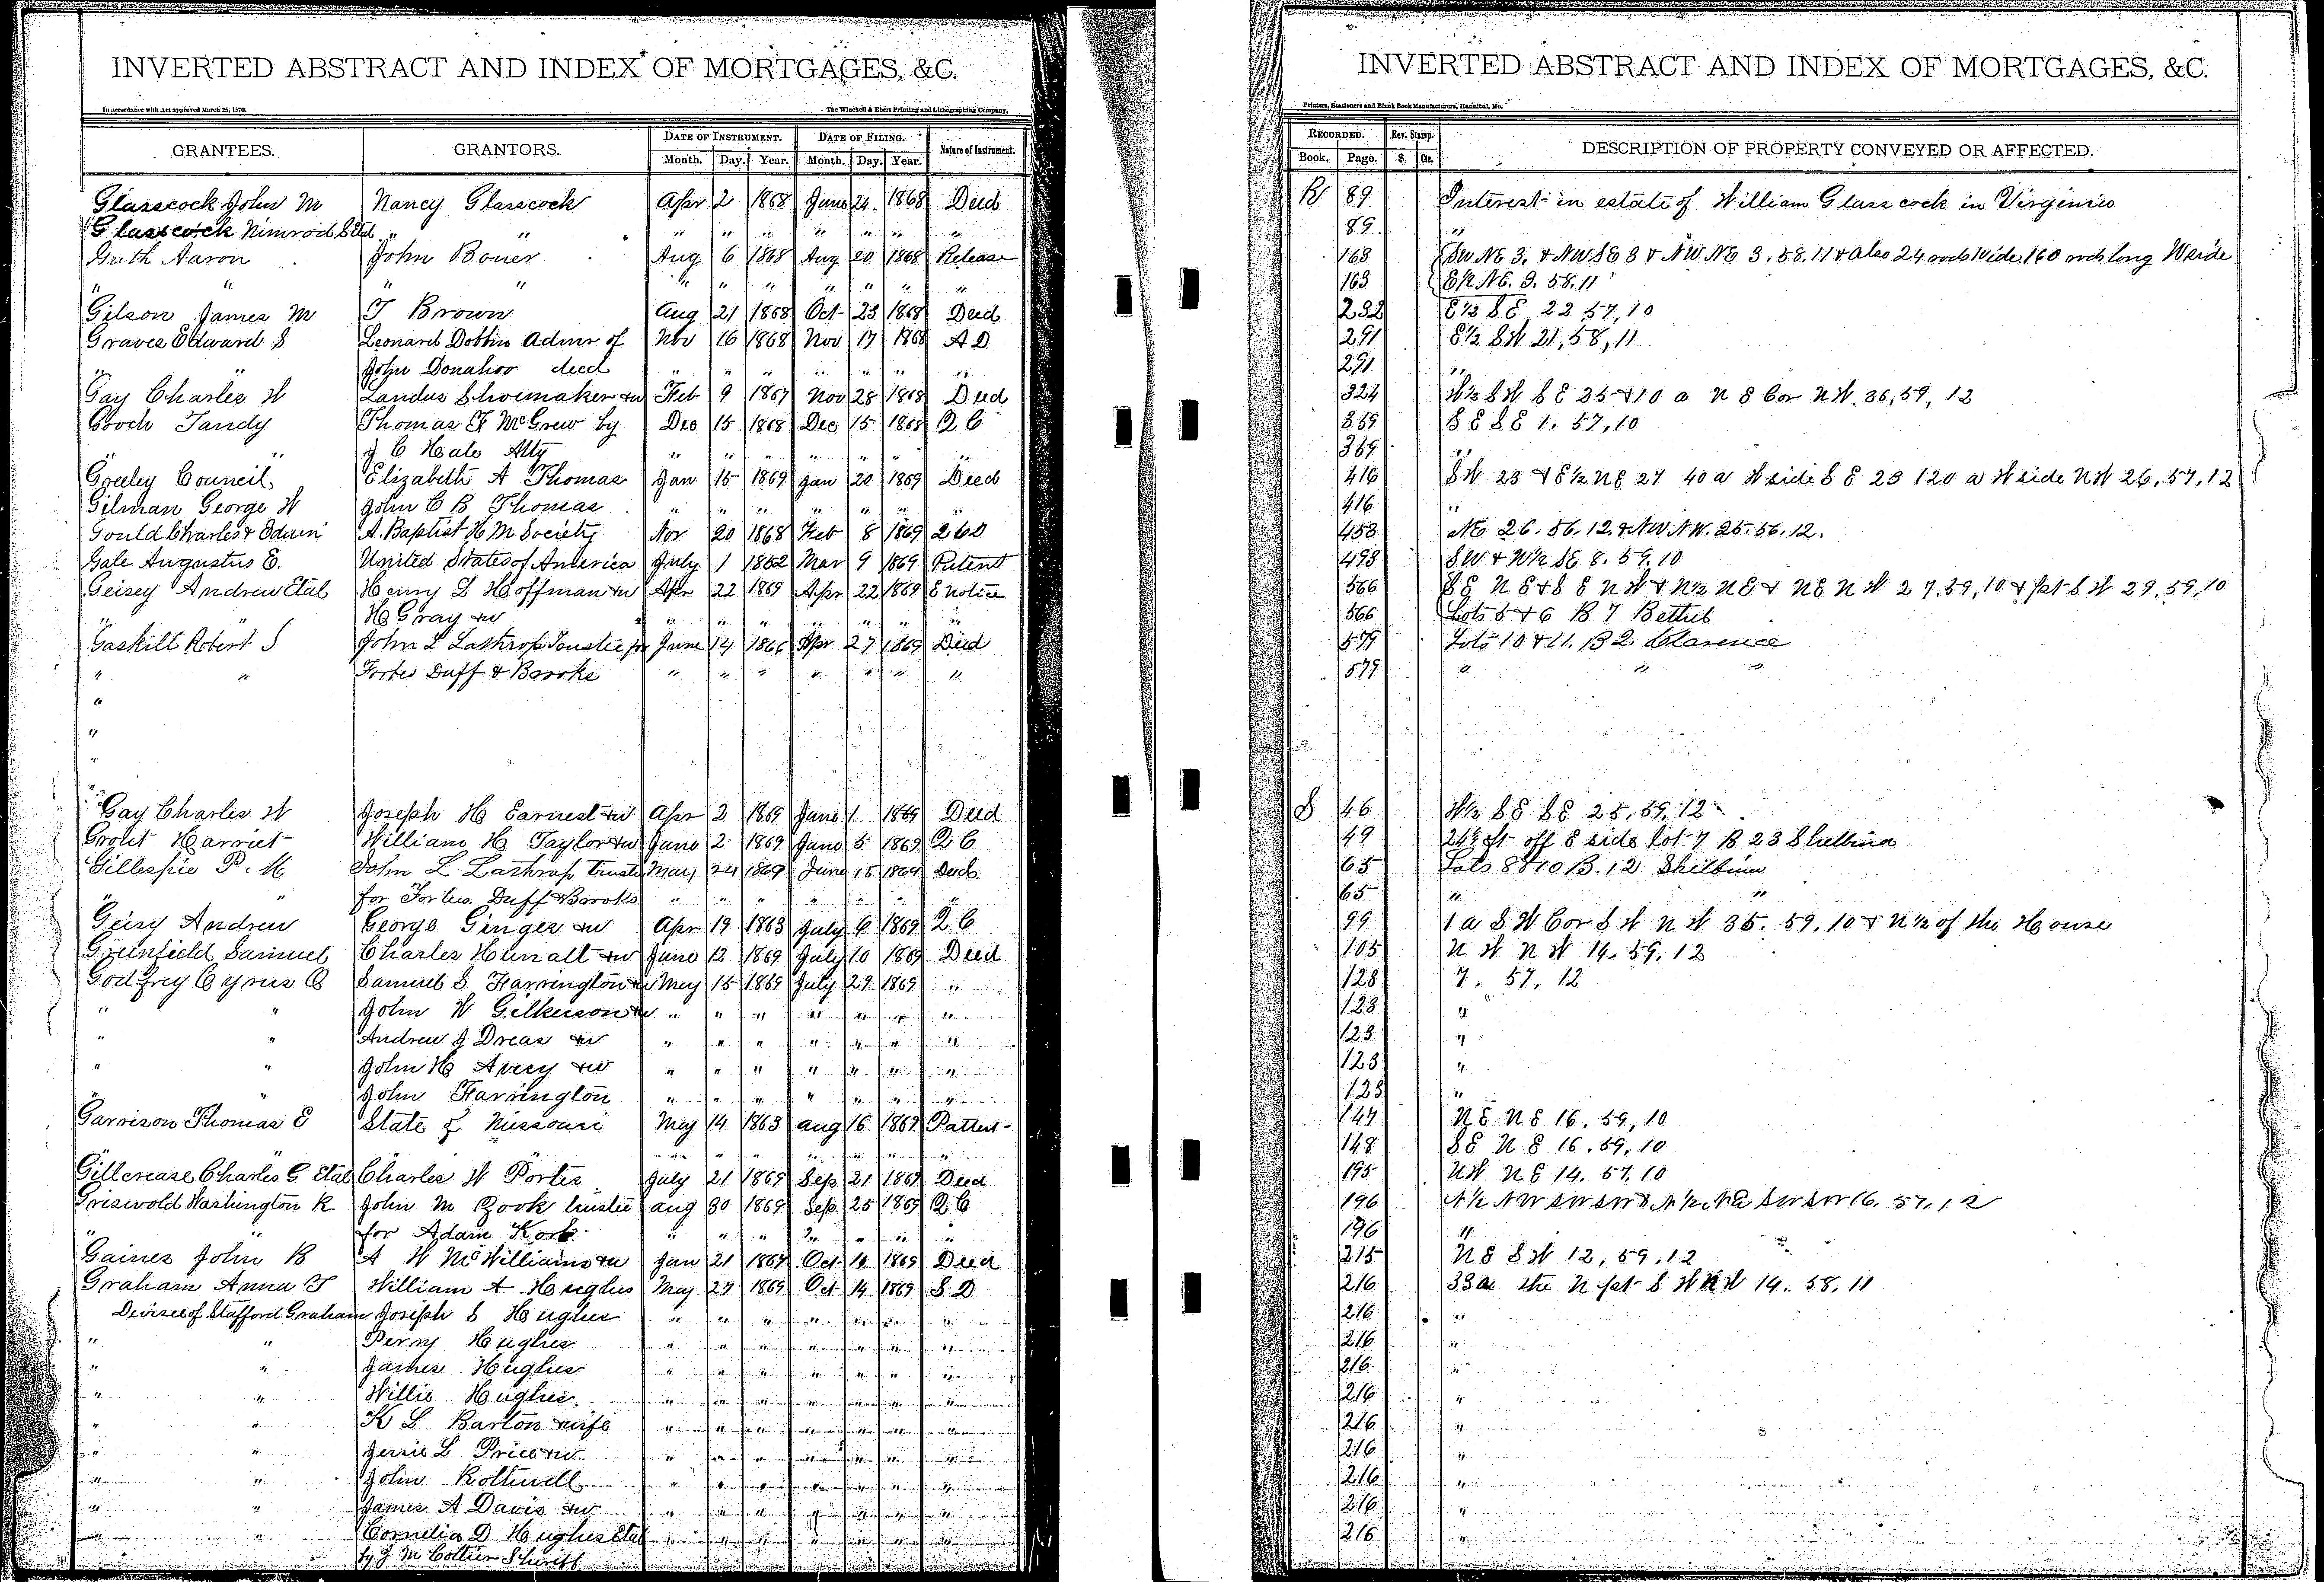 INVERTED ABSTRACT AND INDEX OF MORTGAGES, &C.
In accordance with Act approved March 25, 1870. The Winchell & Ebert Printing and Lithographing Company,
GRANTEES. GRANTORS. DATE OF INSTRUMENT. DATE OF FILING. Nature of Instrument.
Month. Day. Year. Month. Day. Year.
Glasscock John M Nancy Glasscock Apr 2 1868 June 24 1868 Deed
Glasscock Nimrod S Etal " " " " " " " " "
Guth Aaron John Bouer Aug 6 1868 Aug 20 1868 Release
" " " " " " " " "
Gilson James M T Brown Aug 21 1868 Oct 23 1868 Deed
Graves Edward S Leonard Dobbin Admr of Nov 16 1868 Nov 17 1868 A D
" John Donahoo decd " " " " " " "
Gay Charles W Landus Shoemaker &w Feb 9 1867 Nov 28 1868 Deed
Gooch Tandy Thomas F McGrew by Dec 15 1868 Dec 15 1868 Q C
" " J C Hale Atty " " " " " " "
Greeley Council Elizabeth A Thomas Jan 15 1869 Jan 20 1869 Deed
Gilman George W John C B Thomas " " " " " " "
Gould Charles & Edwin A. Baptist H M Society Nov 20 1868 Feb 8 1869 2 C D
Gale Augustus E. United States of America July 1 1852 Mar 9 1869 Patent
Geisey Andrew Etal Henry L Hoffman &w Apr 22 1869 Apr 22 1869 E notice
" " H Gray &w " " " " " " "
Gaskill Robert S John L Lathrop Trustee for June 14 1866 Apr 27 1869 Deed
" " Forbes Duff & Brooks " " " " " " "
"
"
"
"
Gay Charles W Joseph H Earnest &w Apr 2 1869 June 1 1869 Deed
Grout Harriet William H Taylor &w June 2 1869 June 5 1869 Q C
Gillespie P. M John L Lathrop Trustee May 24 1869 June 15 1869 Deed
" " for Forbes Duff & Brooks " " " " " "
Geisy Andrew George Ginger &w Apr 19 1863 July 6 1869 Q C
Greenfield Samuel Charles Hunalt &w June 12 1869 July 10 1869 Deed
Godfrey Cyrus O Samuel S Harrington &w May 15 1869 July 29 1869 "
" " John W Gilkerson &w " " " " " " "
" " Andrew J Dreas &w " " " " " " "
" " John H Avery &w " " " " " " "
" " John Harrington " " " " " " "
Garrison Thomas E State of Missouri May 14 1863 aug 16 1869 Pattent
" " " " " " "
Gillcrease Charles G Etal Charles W Porter July 21 1869 Sep 21 1869 Deed
Griswold Washington R John M Zook trustee aug 30 1869 Sep 25 1869 Q C
" for Adam Kork " " " " " " "
Gaines John B A W McWilliams &w Jan 21 1869 Oct 14 1869 Deed
Graham Anna T William A Hughes May 27 1869 Oct 14 1869 S D
Devisee of Stafford Graham Joseph S Hughes " " " " " " "
" " Perry Hughes " " " " " " "
" " James Hughes " " " " " " "
" " Willie Hughes " " " " " " "
" " K L Barton &wife " " " " " " "
" " Jessie L Price &w " " " " " " "
" " John Rothwell " " " " " " "
" " James A Davis &w " " " " " " "
" " Cornelia D Hughes Etal " " " " " " "
by J M Collier Sheriff
INVERTED ABSTRACT AND INDEX OF MORTGAGES, &C.
Printers, Stationers and Blank Book Manufacturers, Hannibal, Mo.
RECORDED. Rev. Stamp. DESCRIPTION OF PROPERTY CONVEYED OR AFFECTED.
Book. Page. $. Cts.
R 89 Interest in estate of William Glasscock in Virginia
89 "
168 SW NE 3, & NW SE 3 & NW NE 3, 58, 11 & also 24 rods wide 160 rods long W side
163 E½ NE. 3. 58. 11
232 E½ SE 22, 57, 10
291 E½ SW 21, 58, 11
291 "
324 W½ SW SE 25 & 10 a N E Cor N W. 36, 59, 12
359 S E S E 1. 57, 10
359 "
416 S W 23 & E½ NE 27 40 a W side S E 23 120 a W side N W 26, 57, 12
416 "
453 NE 26. 56. 12. & NW NW. 25. 56. 12.
493 S W & W½ SE 8. 59. 10
566 S E N E & S E N W & N½ N E & N E N W 27, 59, 10 & pt S W 29. 59, 10
566 Lots 5 & 6 B 7 Bethel
579 Lots 10 & 11. B 2. Clarence
579 " " "
S 46 W½ S E S E 25, 59, 12
49 24½ ft off E side Lot 7 B 23 Shelbina
65 Lots 8 & 10 B. 12 Shelbina
65 " "
99 1 a S W Cor S W N W 35. 59. 10 & N½ of the House
105 N W N W 14. 59. 12
128 7. 57, 12
123 "
123 "
123 "
123 "
147 N E N E 16. 59, 10
148 S E N E 16. 59, 10
195 N W N E 14. 57, 10
196 N½ NW SW SW & N½ NE SW SW 16. 57. 12
196 "
215 N E S W 12, 59, 12
216 33 a the N pt S W N W 14. 58. 11
216 "
216 "
216 "
216 "
216 "
216 "
216 "
216 "
216 "